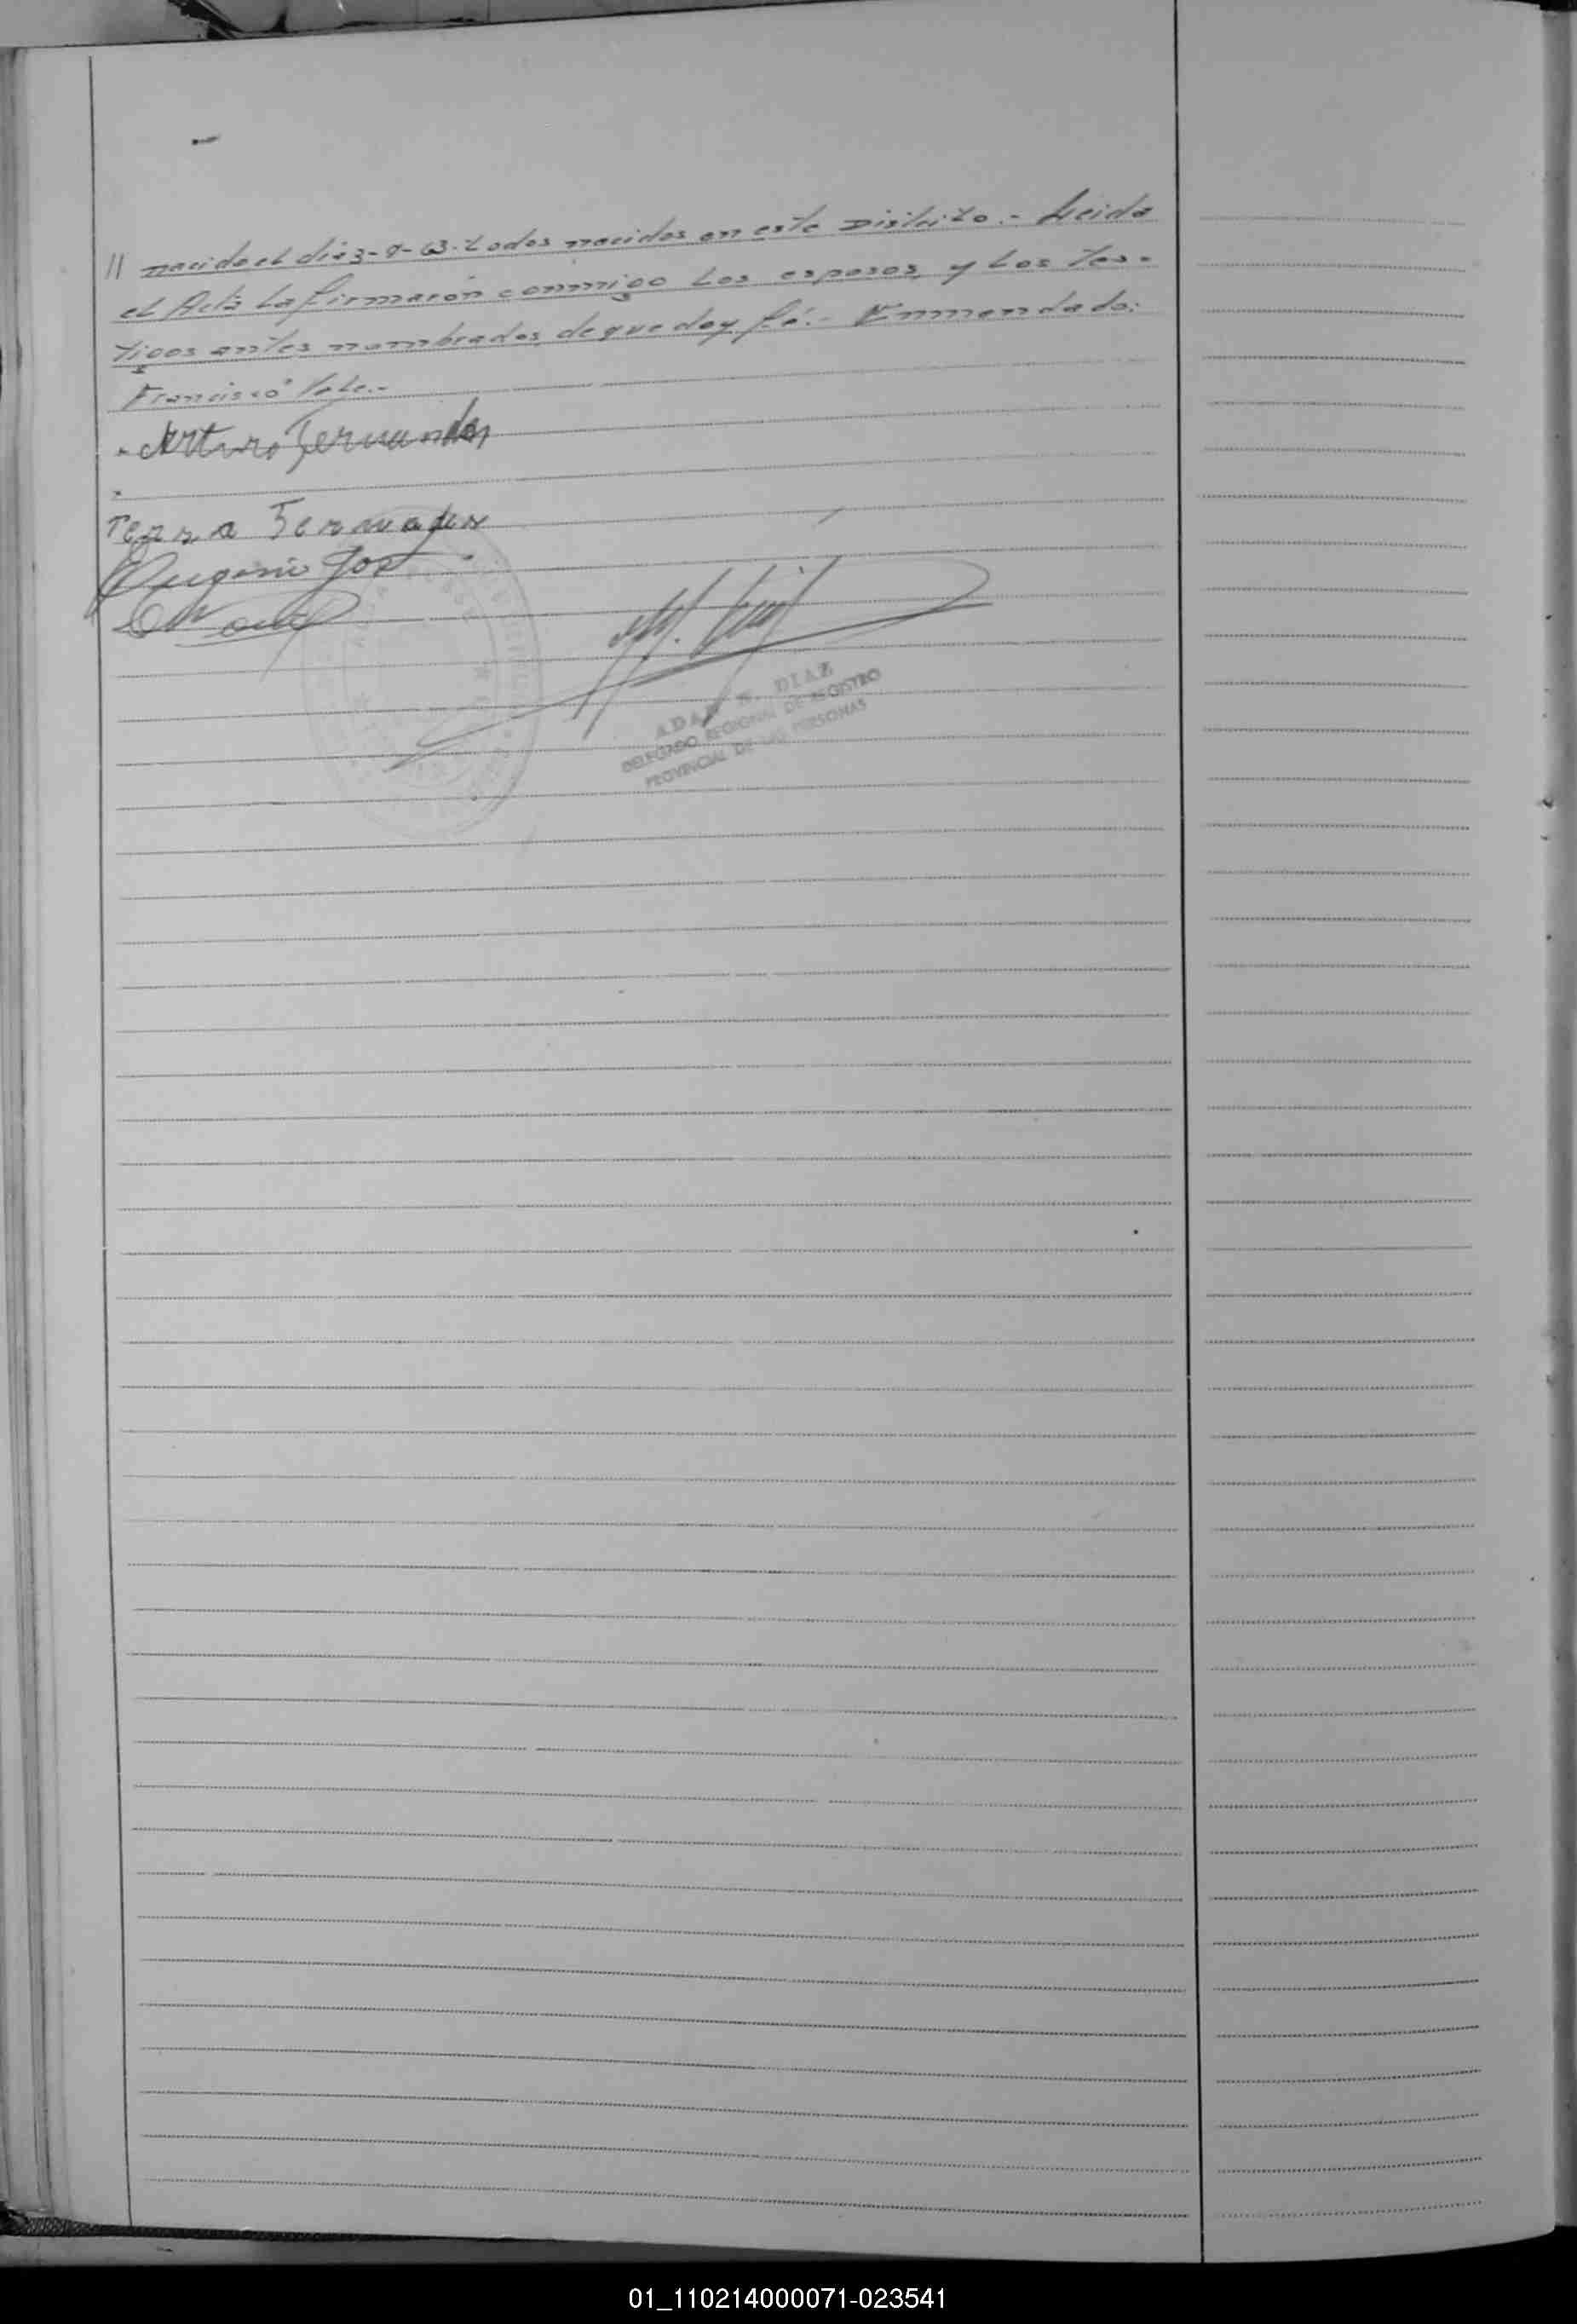 // nacido el día 3-9-63. Todos nacidos en este Distrito.- Leida
el Acta la firmaron conmigo los esposos, y los tes-
tigos antes nombrados, de que doy fé.- Enmendado:
Francisco Vale.-
Arturo Fernandez
Fernandez
Eugenio
ADAN N. DIAZ
DELEGADO REGIONAL DE REGISTRO
PROVINCIAL DE LAS PERSONAS
01_110214000071-023541